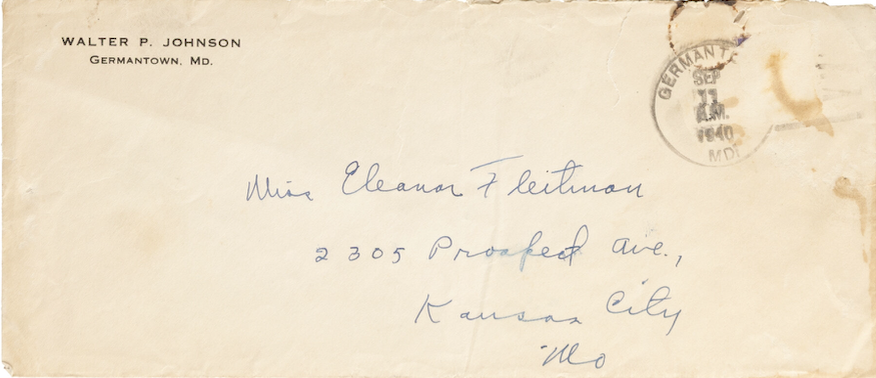 WALTER P. JOHNSON
GERMANTOWN, MD.
GERMANT
SEP
11
A.M.
1940
MD.
Miss Eleanor Fleitman
2305 Prospect Ave.,
Kansas City
Mo